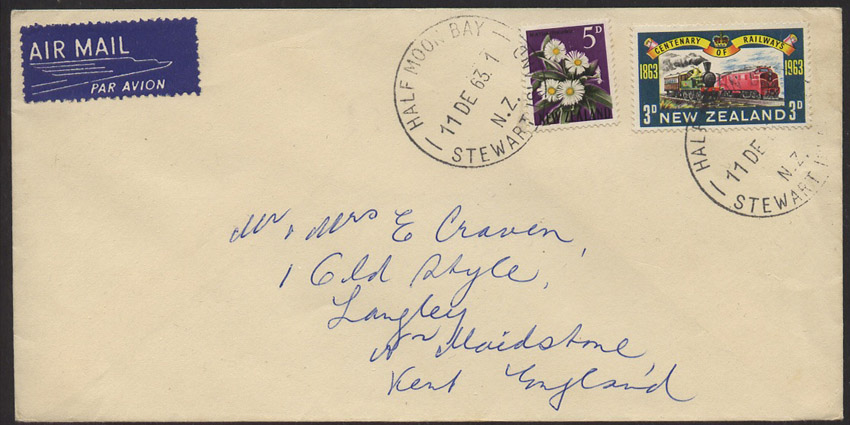 AIR MAIL
PAR AVION
HALF MOON BAY
11 DE 63.1
N.Z.
STEWART ISLAND
5D
NEW ZEALAND
CENTENARY OF RAILWAYS
1863 1963
3D NEW ZEALAND 3D
HALF
11 DE
N.Z.
STEWART I
Mr , Mrs E Craven,
1 Old Style,
Langley
Nr Maidstone
Kent England